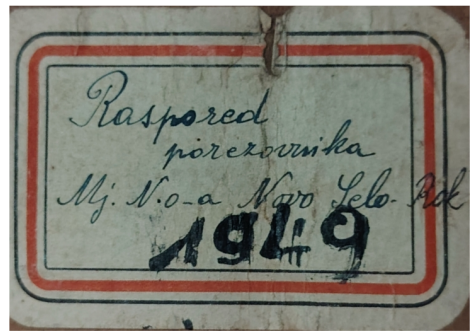 Raspored
porezovnika
Mj. N.o-a Novo Selo-Rok
1949